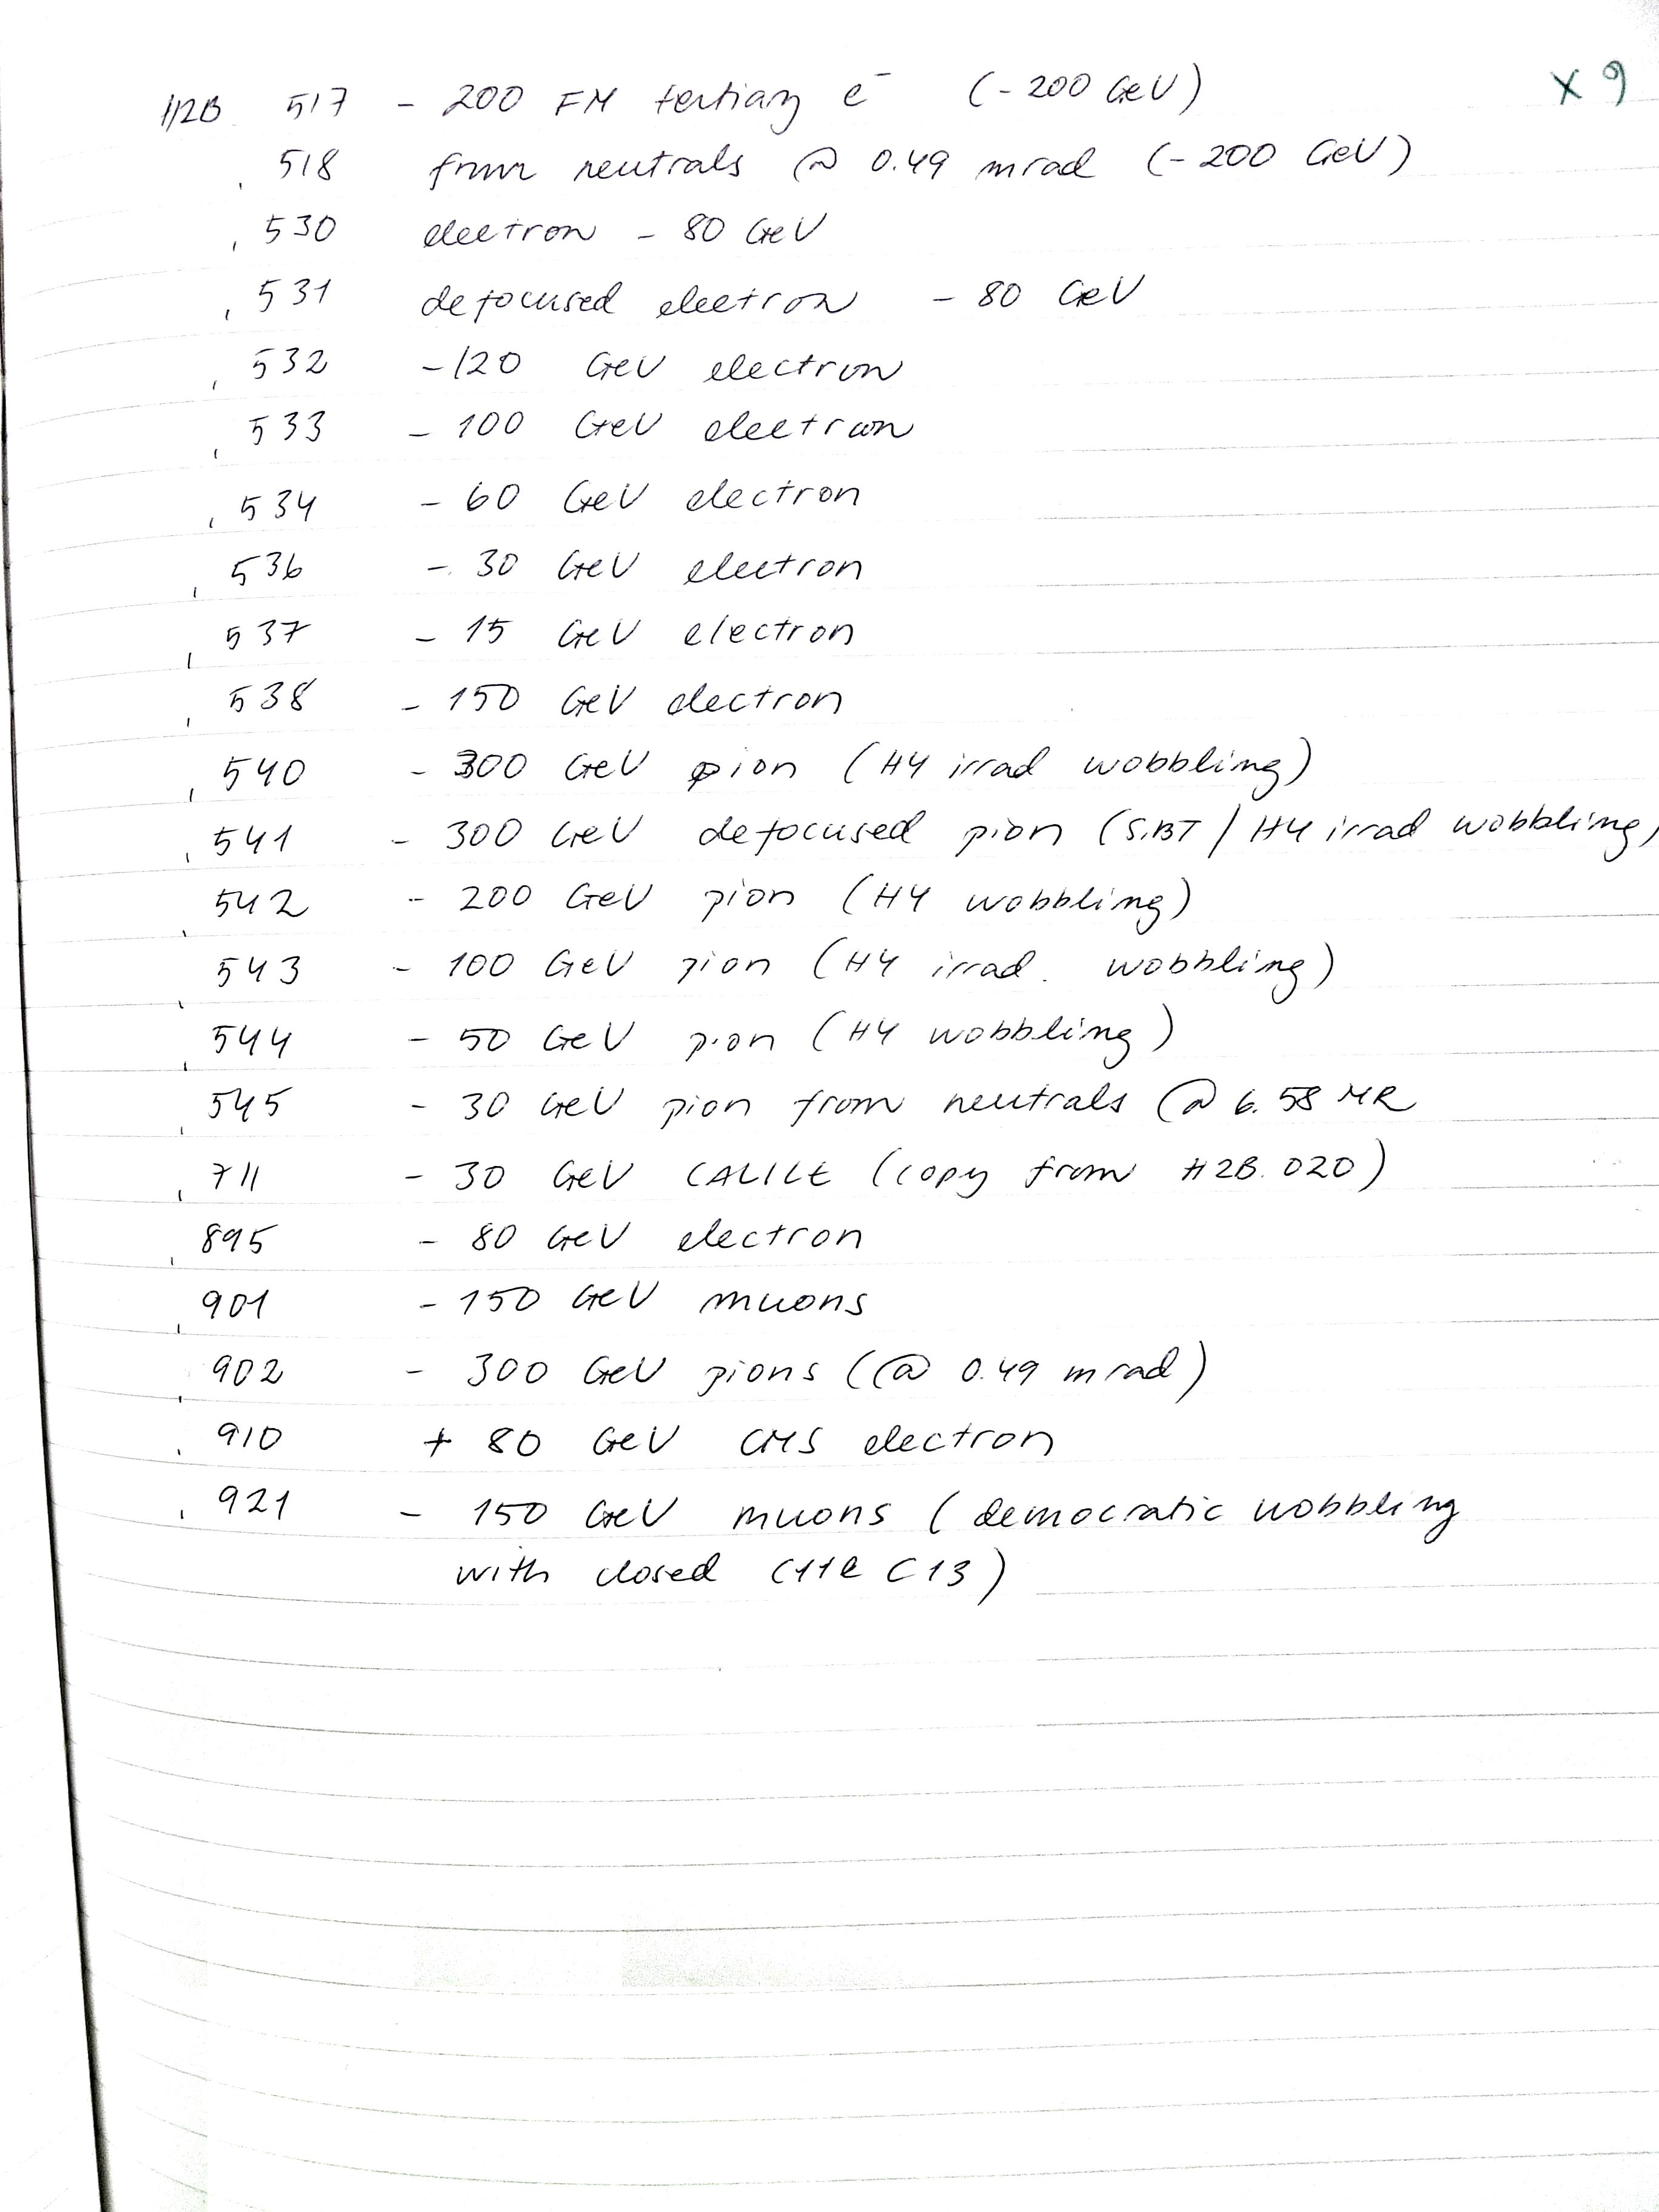 H2B 517 - 200 FM tertiary e⁻ (-200 GeV) x 9
. 518 from neutrals @ 0.49 mrad (-200 GeV)
, 530 electron - 80 GeV
, 531 defocused electron - 80 GeV
, 532 -120 GeV electron
, 533 - 100 GeV electron
, 534 - 60 GeV electron
, 536 - 30 GeV electron
, 537 - 15 GeV electron
, 538 - 150 GeV electron
, 540 - 300 GeV pion (H4 irrad wobbling)
, 541 - 300 GeV defocused pion (S.BT / H4 irrad wobbling)
, 542 - 200 GeV pion (H4 wobbling)
, 543 - 100 GeV pion (H4 irrad. wobbling)
, 544 - 50 GeV pion (H4 wobbling)
, 545 - 30 GeV pion from neutrals @ 6.58 MR
, 711 - 30 GeV CALICE (copy from H2B.020)
, 895 - 80 GeV electron
, 901 - 150 GeV muons
, 902 - 300 GeV pions (@ 0.49 mrad)
. 910 + 80 GeV CMS electron
. 921 - 150 GeV muons (democratic wobbling
with closed C11 & C13)